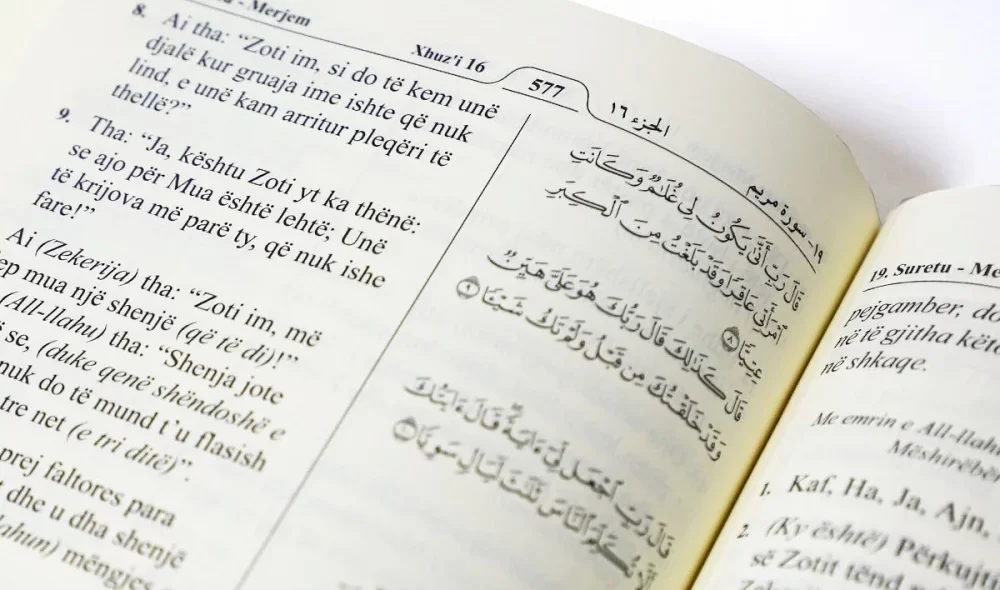 - Merjem
Xhuz'i 16
577
الجزء ١٦
١٩- سورة مريم
8. Ai tha: “Zoti im, si do të kem unë
djalë kur gruaja ime ishte që nuk
lind, e unë kam arritur pleqëri të
thellë?”
9. Tha: “Ja, kështu Zoti yt ka thënë:
se ajo për Mua është lehtë; Unë
të krijova më parë ty, që nuk ishe
fare!”
Ai (Zekerija) tha: “Zoti im, më
mua një shenjë (që të di)!”
(All-llahu) tha: “Shenja jote
se, (duke qenë shëndoshë e
nuk do të mund t’u flasish
tre net (e tri ditë)”.
prej faltores para
dhe u dha shenjë
mëngjes
قَالَ رَبِّ أَنَّىٰ يَكُونُ لِي غُلَٰمٌ وَكَانَتِ
ٱمْرَأَتِي عَاقِرًا وَقَدْ بَلَغْتُ مِنَ ٱلْكِبَرِ
عِتِيًّا ٨
قَالَ كَذَٰلِكَ قَالَ رَبُّكَ هُوَ عَلَيَّ هَيِّنٌ
وَقَدْ خَلَقْتُكَ مِن قَبْلُ وَلَمْ تَكُ شَيْـًٔا ٩
قَالَ رَبِّ ٱجْعَل لِّي ءَايَةً قَالَ ءَايَتُكَ
أَلَّا تُكَلِّمَ ٱلنَّاسَ ثَلَٰثَ لَيَالٍ سَوِيًّا ١٠
19. Suretu - Me
pejgamber, do
në të gjitha këto
në shkaqe.
Me emrin e All-llahu
Mëshirëbër
1. Kaf, Ha, Ja, Ajn,
2. (Ky është) Përkujti
së Zotit tënd